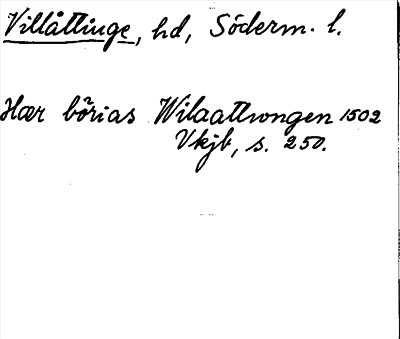 Villåttinge, hd, Söderm. l.
Hær börias Wilaattwngen 1502
Vkjb, s. 250.